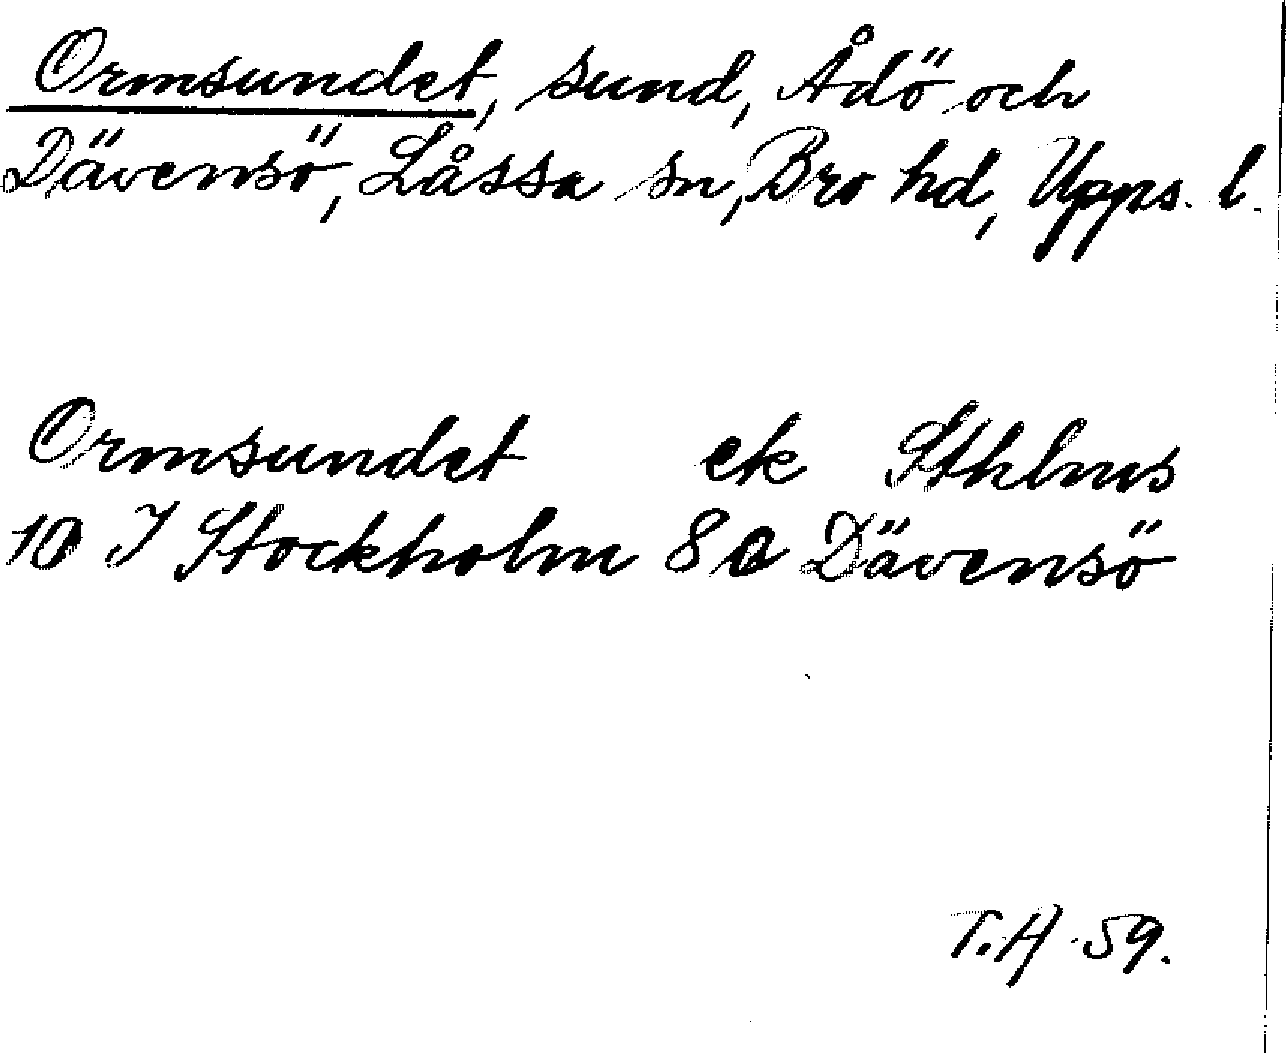 Ormsundet, sund, Ådö och
Dävensö, Låssa sn, Bro hd, Upps. l.
Ormsundet ek Sthlms
10 I Stockholm 8 a Dävensö
T.H 59.